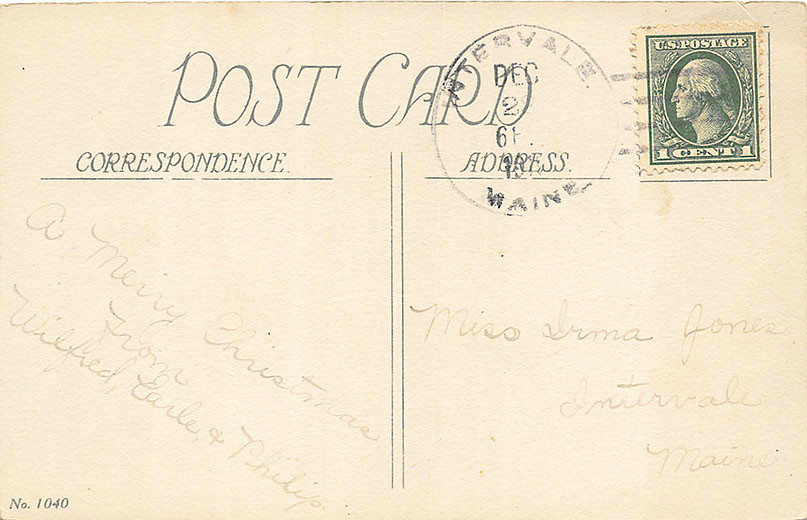 POST CARD
CORRESPONDENCE.
ADDRESS.
INTERVALE
DEC
2
6P.
MAINE.
U.S. POSTAGE
1 CENT 1
A Merry Christmas
From
Wilfred, Earle & Philip.
Miss Irma Jones
Intervale
Maine
No. 1040